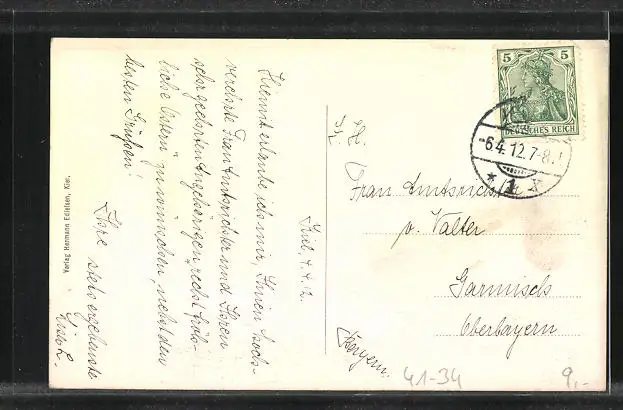 Kiel, 4.4.12.
Hiermit erlaube ich mir, Ihnen hoch-
verehrte Frau Amtsrichter und Ihren
sehr geehrten Angehörigen, recht fröh-
liche Ostern zu wünschen, nebst den
besten Grüßen
Ihre stets ergebenste
5 5
DEUTSCHES REICH
-6.4.12.7-8.
* 1 *
I. H.
Frau Amtsrichter
v. Valter
Garmisch
Oberbayern
Bayern.
Verlag Hermann Edlefsen, Kiel.
41-34
9,-